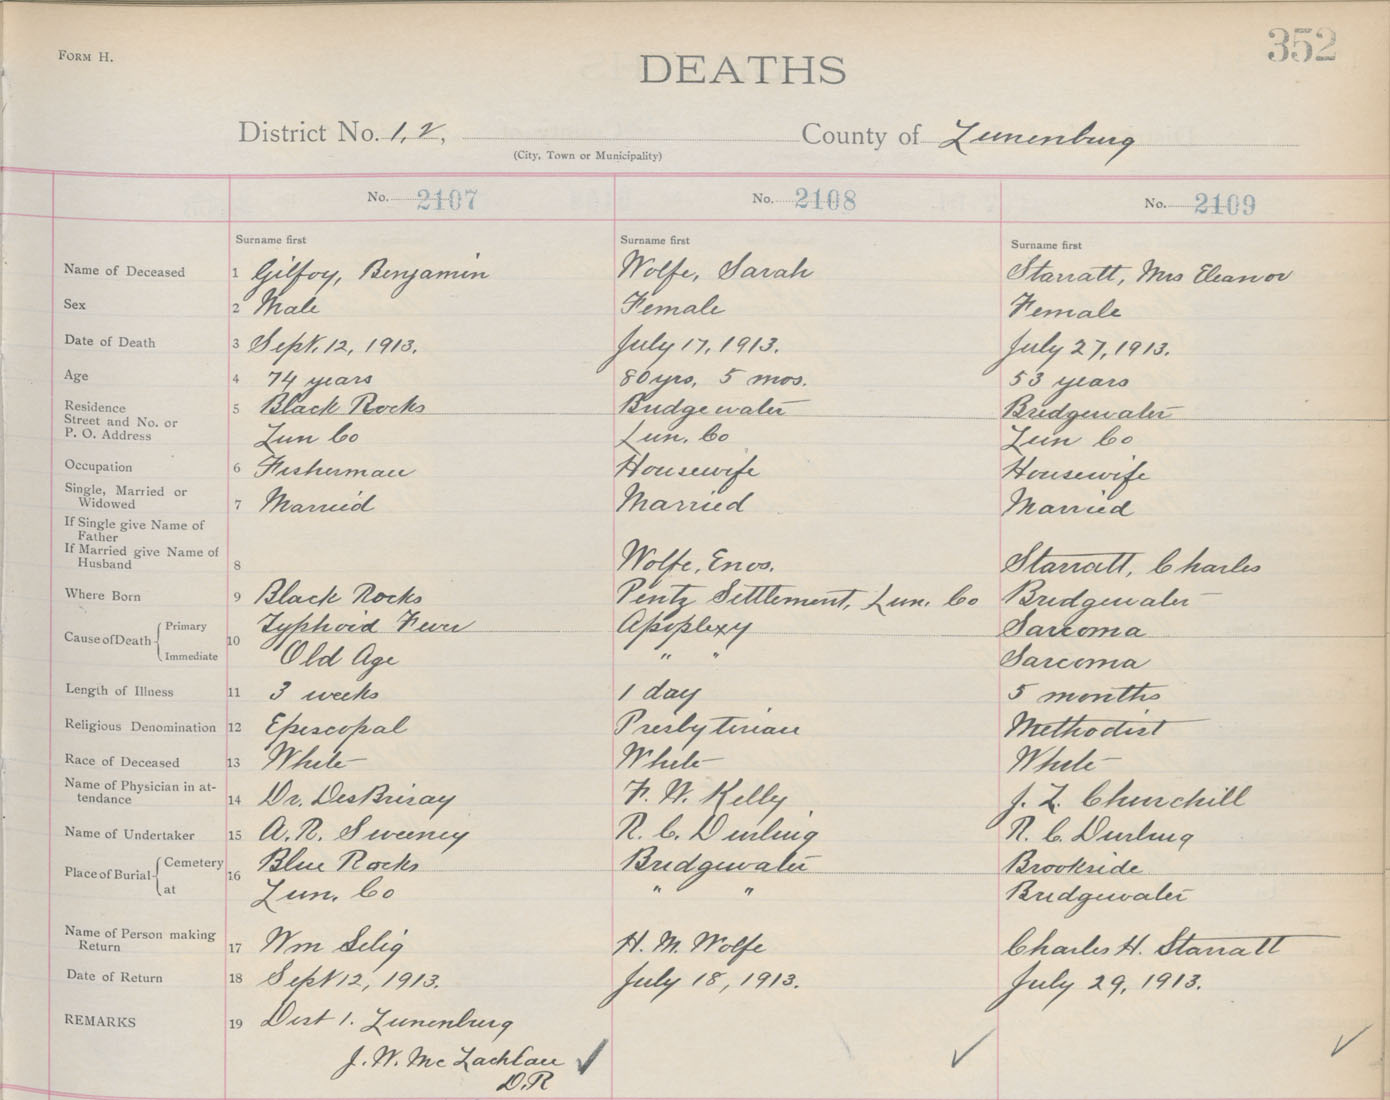 352
FORM H.
DEATHS
District No. 1, 2, County of Lunenburg
(City, Town or Municipality)
No. 2107 No. 2108 No. 2109
Surname first Surname first Surname first
Name of Deceased 1 Gilfoy, Benjamin Wolfe, Sarah Starratt, Mrs Eleanor
Sex 2 Male Female Female
Date of Death 3 Sept. 12, 1913. July 17, 1913. July 27, 1913.
Age 4 74 years 80 yrs, 5 mos. 53 years
Residence 5 Black Rocks Bridgewater Bridgewater
Street and No. or
P. O. Address Lun Co Lun. Co Lun Co
Occupation 6 Fisherman Housewife Housewife
Single, Married or
Widowed 7 Married Married Married
If Single give Name of
Father
If Married give Name of
Husband 8 Wolfe, Enos. Starratt, Charles
Where Born 9 Black Rocks Pentz Settlement, Lun. Co Bridgewater
Cause of Death Primary 10 Typhoid Fever Apoplexy Sarcoma
Immediate Old Age " " Sarcoma
Length of Illness 11 3 weeks 1 day 5 months
Religious Denomination 12 Episcopal Presbyterian Methodist
Race of Deceased 13 White White White
Name of Physician in at-
tendance 14 Dr. DesBrisay F. W. Kelly J. L. Churchill
Name of Undertaker 15 A. R. Sweeney R. C. Durling R. C. Durling
Place of Burial Cemetery 16 Blue Rocks Bridgewater Brookside
at Lun. Co " " Bridgewater
Name of Person making
Return 17 Wm Selig H. M. Wolfe Charles H. Starratt
Date of Return 18 Sept 12, 1913. July 18, 1913. July 29, 1913.
REMARKS 19 Dist 1. Lunenburg
J. W. McLachlan
D.R